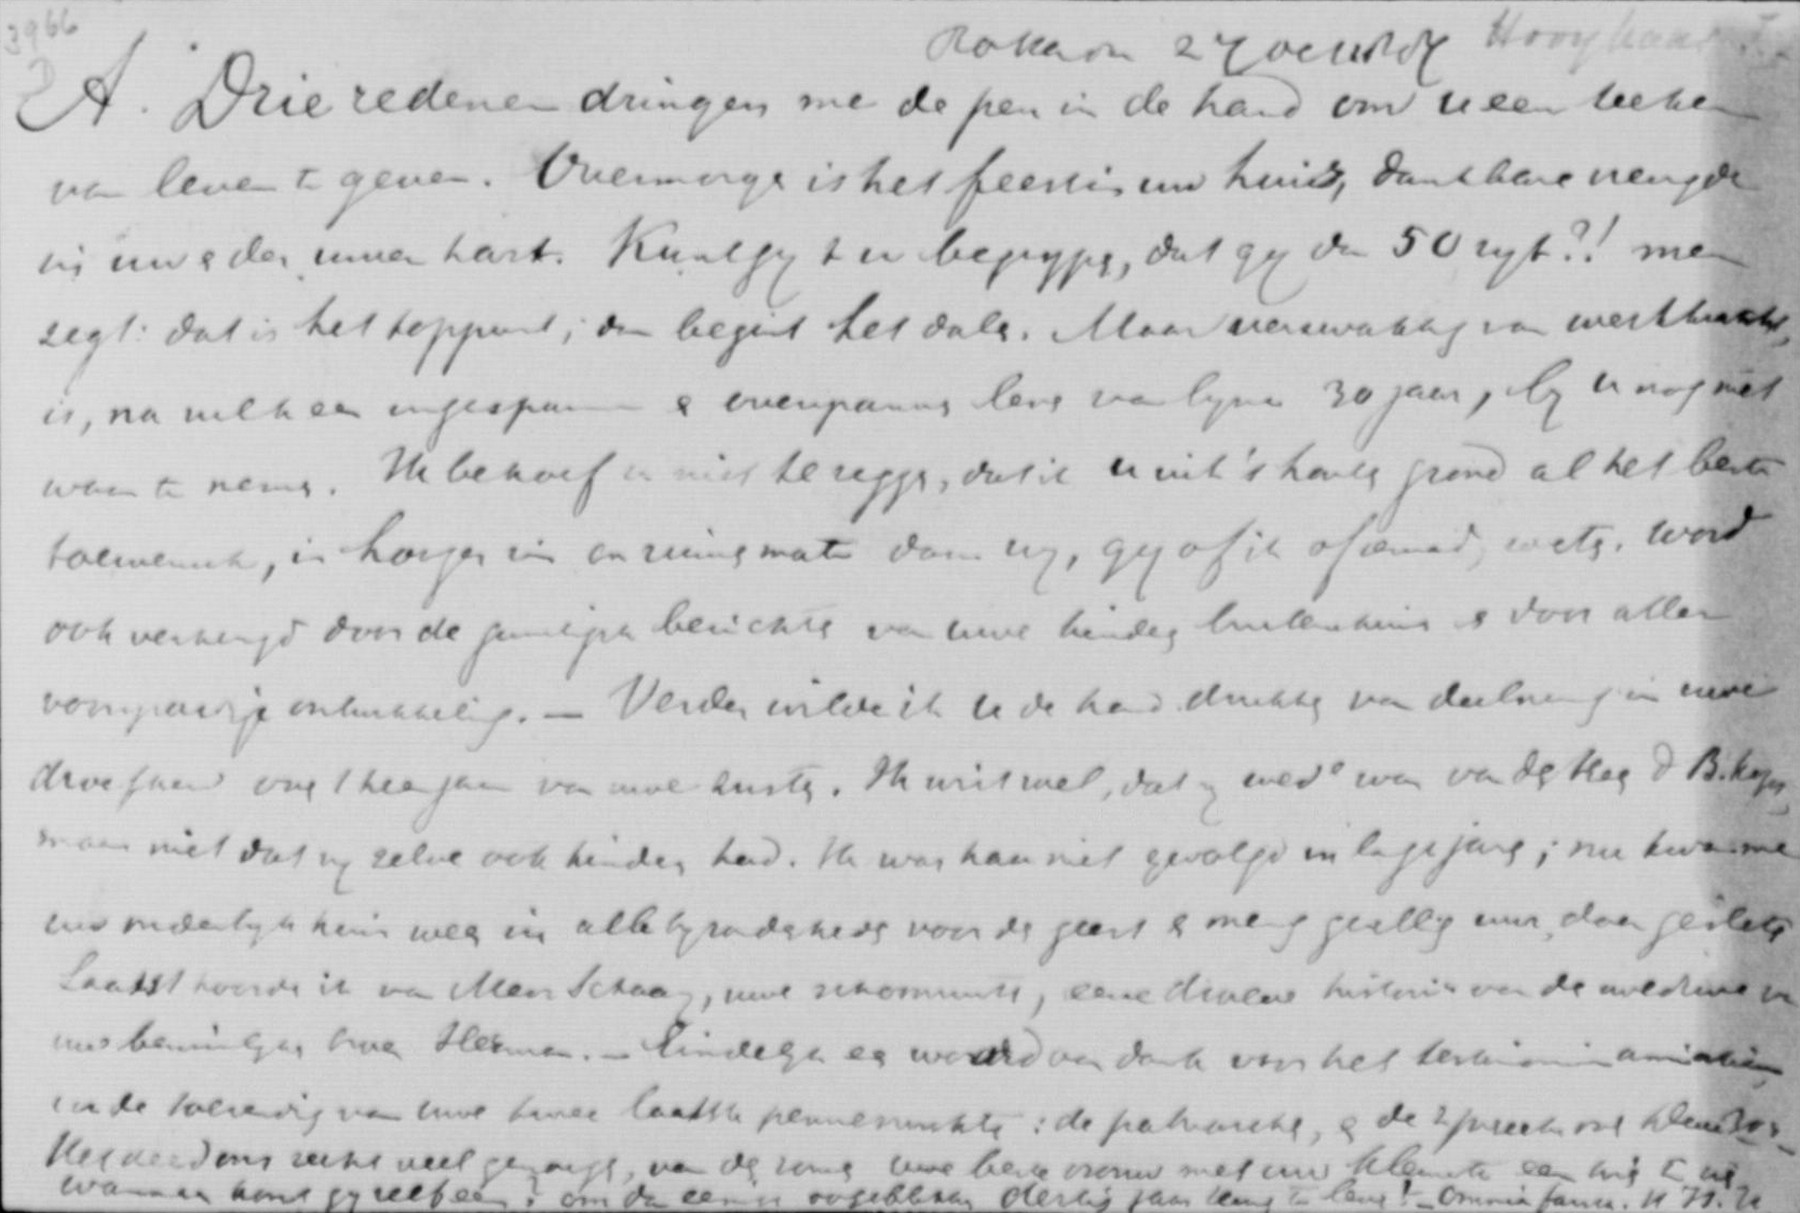 3966
27 Hooykaas
A. Drie redenen dringen me de pen in de hand om u een teeken
van leven te geven. Overmorge is het feest in uw huis, dankbare vreugde
in uw aller hart. Kunt gy 't u begrype, dat gy da 50 zyt?! men
zegt: dat is het toppunt; dan begint het dale. Maar verzwakking van werkkracht,
is, na welk een ingespannen & leve van byna 30 jaar, by u nog niet
waar te neme. Ik behoef u niet te zegge, dat ik u uit 's harte grond al het beste
toewensch, in hooger zin en ruimer mate dan wy, gy of ik of iemand, wete. Word
ook verheugd door de berichte van uwe kindere buitenshuis & door aller
voorspoedige ontwikkeling. — Verder wilde ik u de hand drukke van deelneming in uwe
droefheid over 't heengaan van uwe zuster. Ik wist wel, dat zy wede was van de Heer
maar niet dat zy zelve ook kindere had. Ik was haar niet gevolgd in lage jare; nu kwam me
uw ouderlyk huis weer in alle byzonderhede voor de geest & menig gezellig uur, daar gesleten
Laatst hoorde ik van Mevr Schaay, uwe schoonzuster, eene droeve historie van de weduwe van
uw broer Herman. — Eindelyk een woord van dank voor het testimonium amicitiae,
in de toezending van uwe twee laatste pennevruchte: de patriarche, & de
Het deed ons recht veel genoege, van de zomer uwe beste vrouw met uw kleinste een in 't
wanneer komt gy zelf een: om da eenige oogenblikke dertig jaar terug te leve! — Omnia fausta. H.